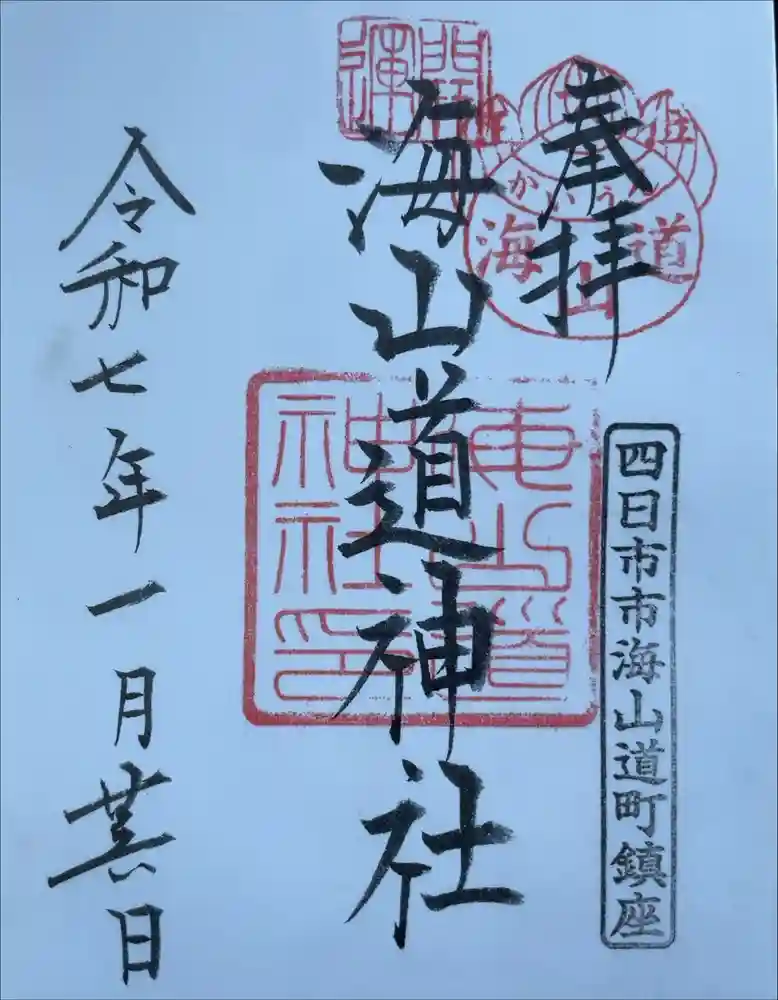 奉拝
開運
かいうん
海山道
四日市市海山道町鎮座
海山道神社
海山道
神社印
令和七年一月廿六日